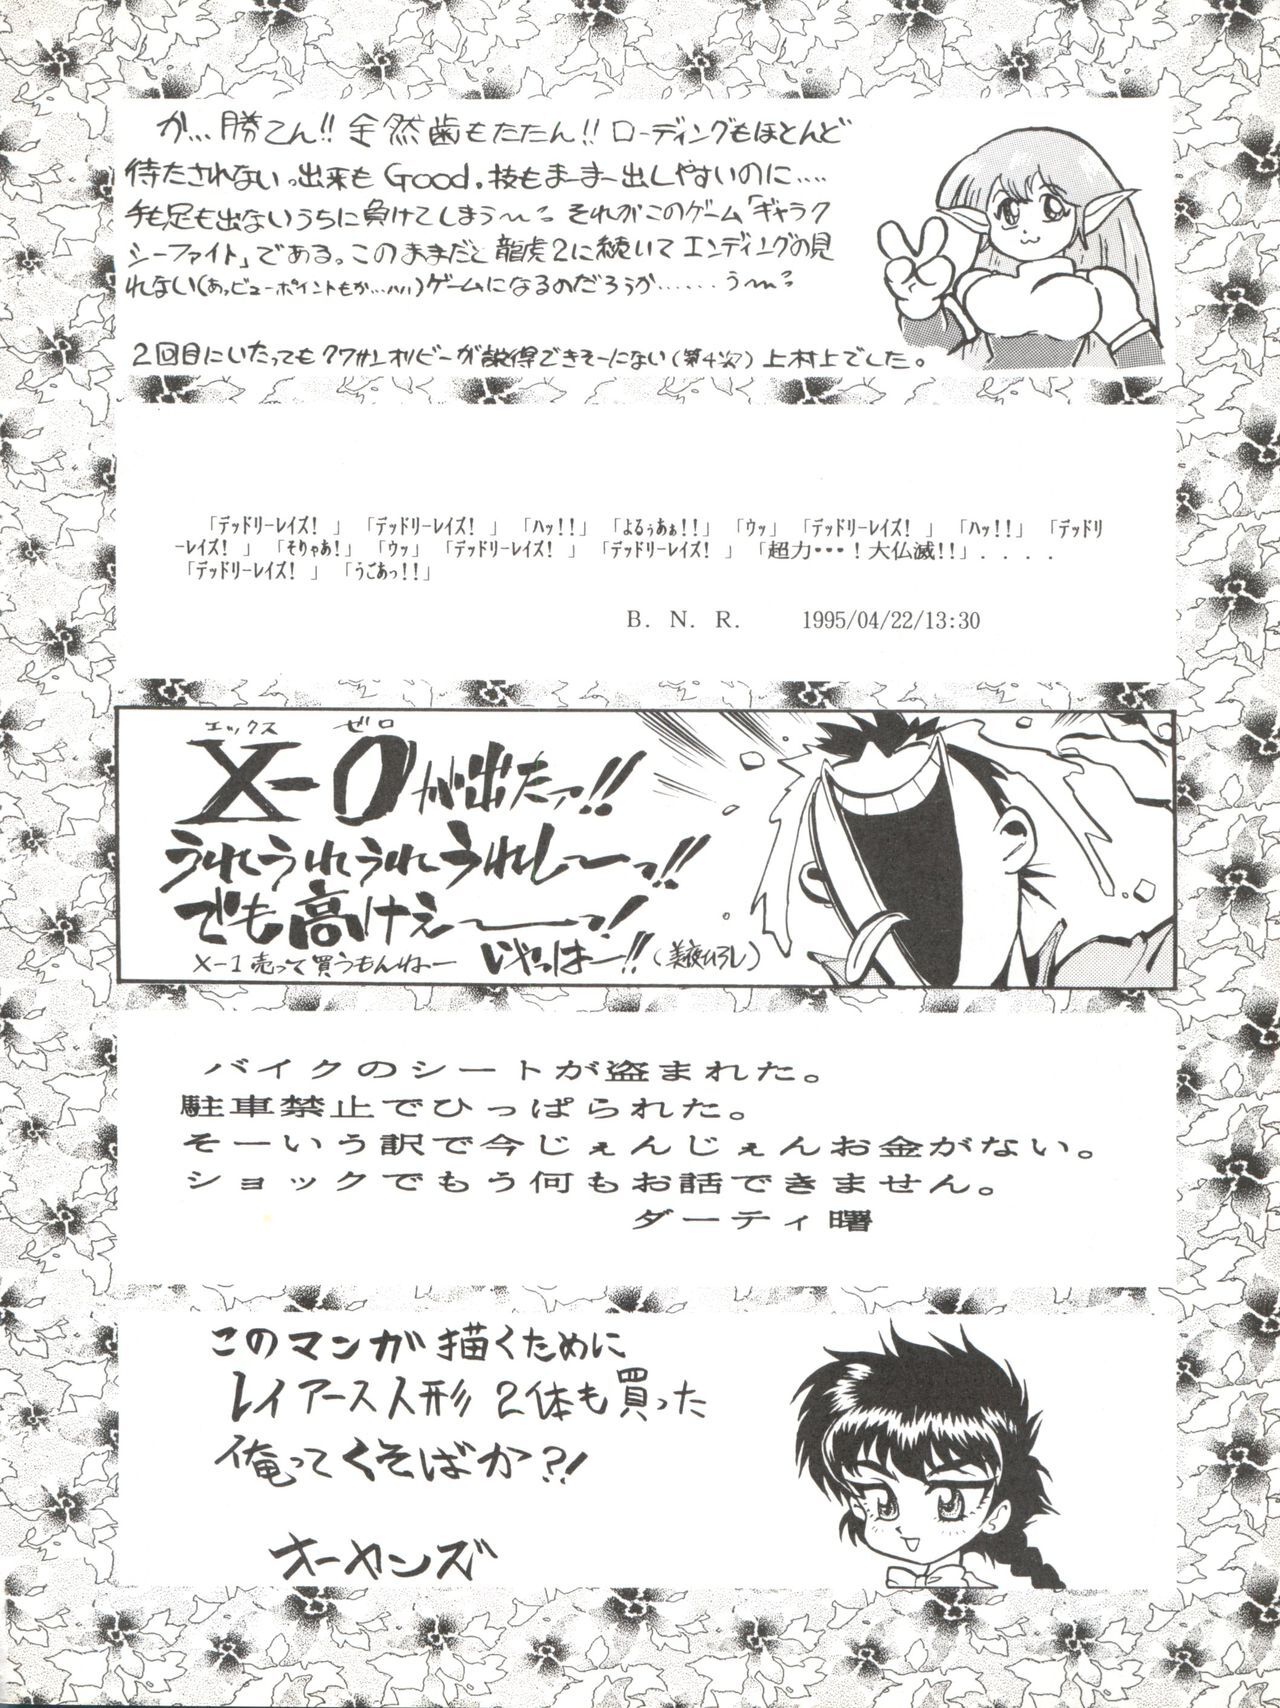 が…勝てん!! 全然歯もたたん!! ローディングもほとんど
待たされないっ出来もGood.技もまーまー出しやすいのに‥‥
手も足も出ないうちに負けてしまう〜〜? それがこのゲーム「ギャラク
シーファイト」である。このままだと龍虎2に続いてエンディングの見
れない(あっビューポイントもか…ハハ)ゲームになるのだろうか……う〜〜?
2回目にいたってもクワサンオリビーが説得できそーにない(第4次) 上村上でした。
「デッドリーレイズ! 」 「デッドリーレイズ! 」 「ハッ!!」 「よるぅあぁ!!」 「ウッ」 「デッドリーレイズ! 」 「ハッ!!」 「デッドリ
ーレイズ! 」 「そりゃあ!」 「ウッ」 「デッドリーレイズ! 」 「デッドリーレイズ! 」 「超力・・・!大仏滅!!」....
「デッドリーレイズ! 」 「うごあっ!!」
B. N. R. 1995/04/22/13:30
エックス ゼロ
X-0が出たァ!!
うれうれうれうれしーーっ!!
でも高けぇーーっ!
X-1売って買うもんねー いやっはー!! (美夜ひろし)
バイクのシートが盗まれた。
駐車禁止でひっぱられた。
そーいう訳で今じぇんじぇんお金がない。
ショックでもう何もお話できません。
ダーティ曙
このマンガ描くために
レイアース人形2体も買った
俺ってくそばか?!
オーカンズ